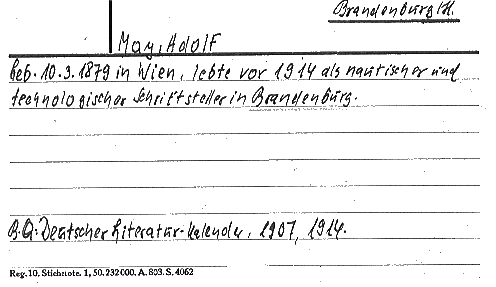 Brandenburg/H.
May, Adolf
geb. 10.3.1879 in Wien, lebte vor 1914 als nautischer und
technologischer Schriftsteller in Brandenburg.
B.Q. Deutscher Literatur-Kalender, 1907, 1914.
Reg. 10. Stichnote. 1, 50. 232000. A. 803. S. 4062